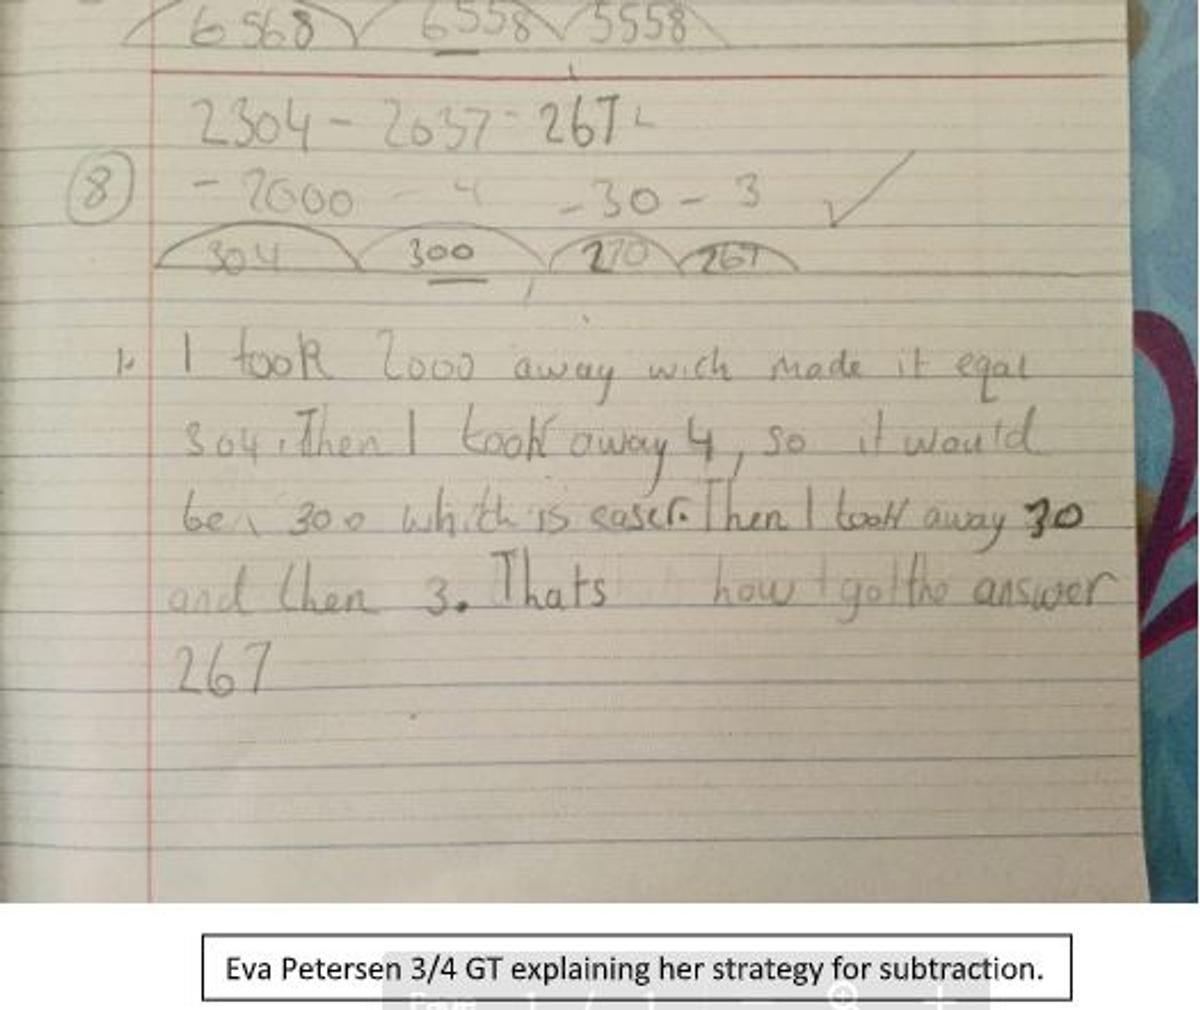 6568 6558 5558
2304 - 2037 = 267
8 - 2000 - 4 - 30 - 3
304 300 270 267
1. I took 2000 away wich made it eqal
304. Then I took away 4, so it would
be 300 which is easer. Then I took away 30
and then 3. Thats how I got the answer
267
Eva Petersen 3/4 GT explaining her strategy for subtraction.
Page 1 / 1 - +